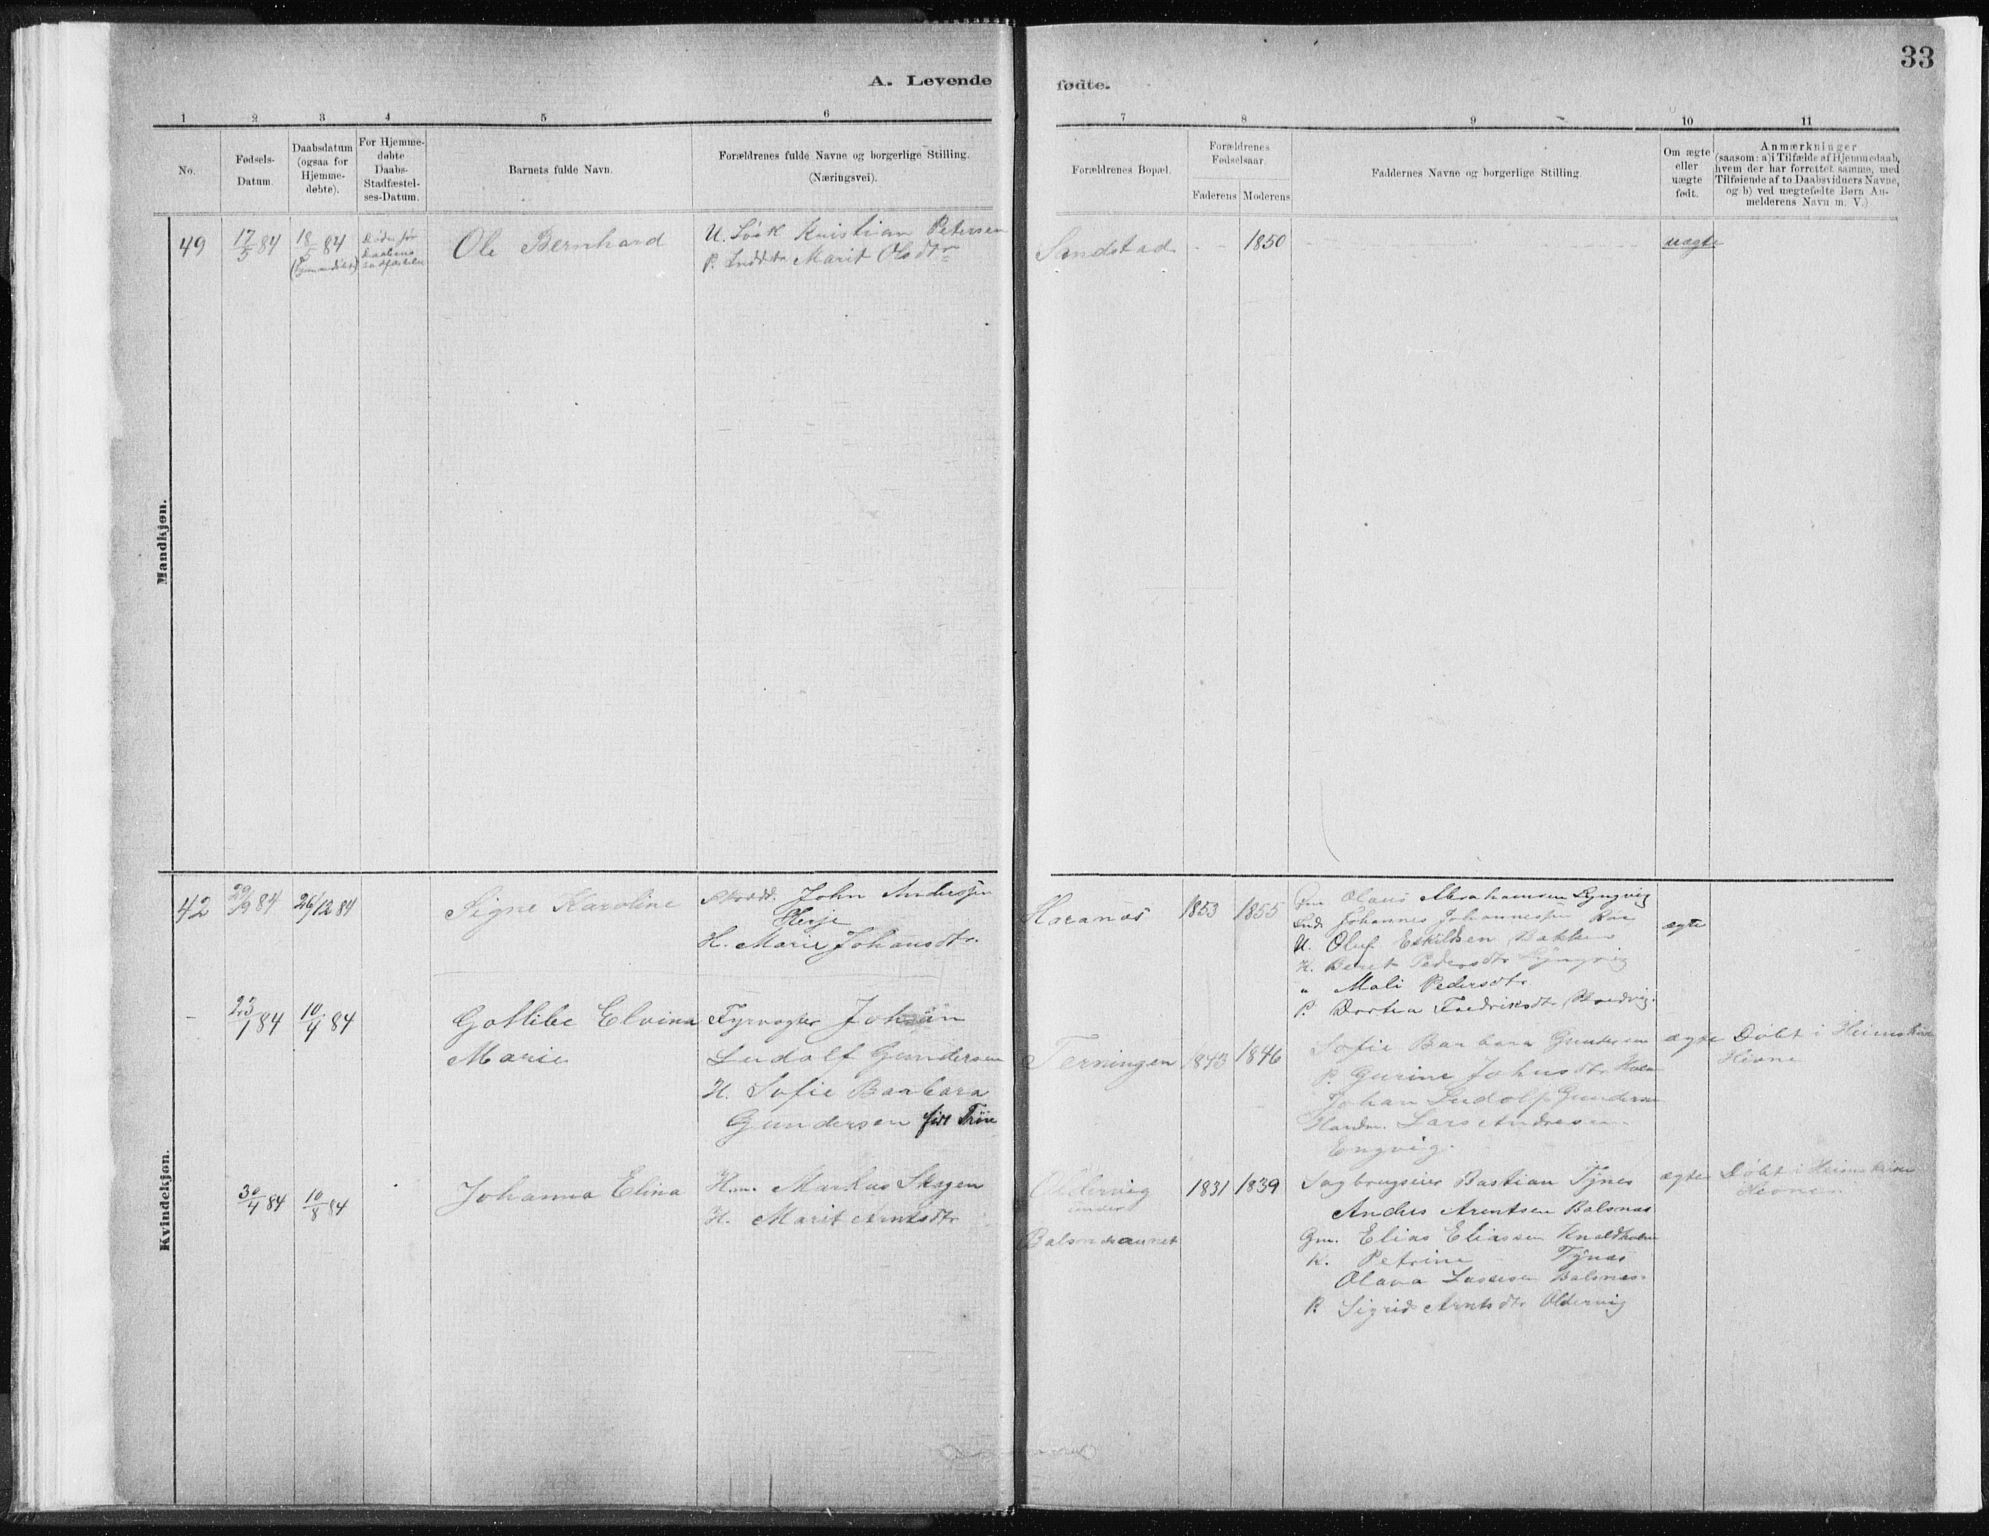 33
A. Levende fødte.
1 2 3 4 5 6 7 8 9 10 11
No.
Fødsels-
Datum.
Daabsdatum
(ogsaa for
Hjemme-
døbte).
For Hjemme-
døbte
Daabs-
Stadfæstel-
ses-Datum.
Barnets fulde Navn.
Forældrenes fulde Navne og borgerlige Stilling.
(Næringsvei).
Forældrenes Bopæl.
Forældrenes
Fødselsaar.
Faderens Moderens
Faddernes Navne og borgerlige Stilling.
Om ægte
eller
uægte
født.
Anmærkninger
(saasom: a) i Tilfælde af Hjemmedaab,
hvem der har forrettet samme, med
Tilføiende af to Daabsvidners Navne,
og b) ved uægtefødte Børn An-
melderens Navn m. V.)
Mandkjøn.
49
17/5 84
18/5 84
Døde før
Daabens
Ole Bernhard
Kristian Petersen
Marit Olsdtr
Sandstad
1850
uægte
Kvindekjøn.
42
29/9 84
26/12 84
Signe Karoline
John Anderssen
H. Marie Johansdtr.
1853 1855
Olaus Abrahamsen Lyngvig
Johannes Johannessen
U. Oluf Eskildsen Bakken
H. Beret Pedersdtr Lyngvig
" Mali Pedersdtr
P. Dortea Fredriksdtr
ægte
-
23/1 84
10/4 84
Gotlibe Elvina
Marie
Fyrvogter Johan
Ludolf Gundersen
H. Sofie Barbara
Gundersen
Terningen
1843 1846
Sofie Barbara Gundersen
P. Gurine
Johan Ludolf Gundersen
Lars Andresen
Engvig.
ægte
Døbt i
Hevne
30/4 84
10/8 84
Johanna Elina
Hm. Markus Skagen
H. Marit Arntsdtr
Oldervig
under
1831 1839
Sagbrugseier Bastian Tynes
Anders Arentsen Balsnes
Gm. Elias Eliassen
K. Petrine Tynes
Olava Lassesen Balsnes
P. Sigrid Arntsdtr Oldervig
ægte
Døbt i
Hevne